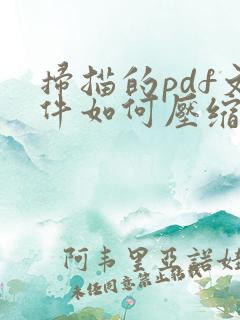 掃描的pdf文
件如何壓縮
阿韦里亞諾娃
未任同意禁止